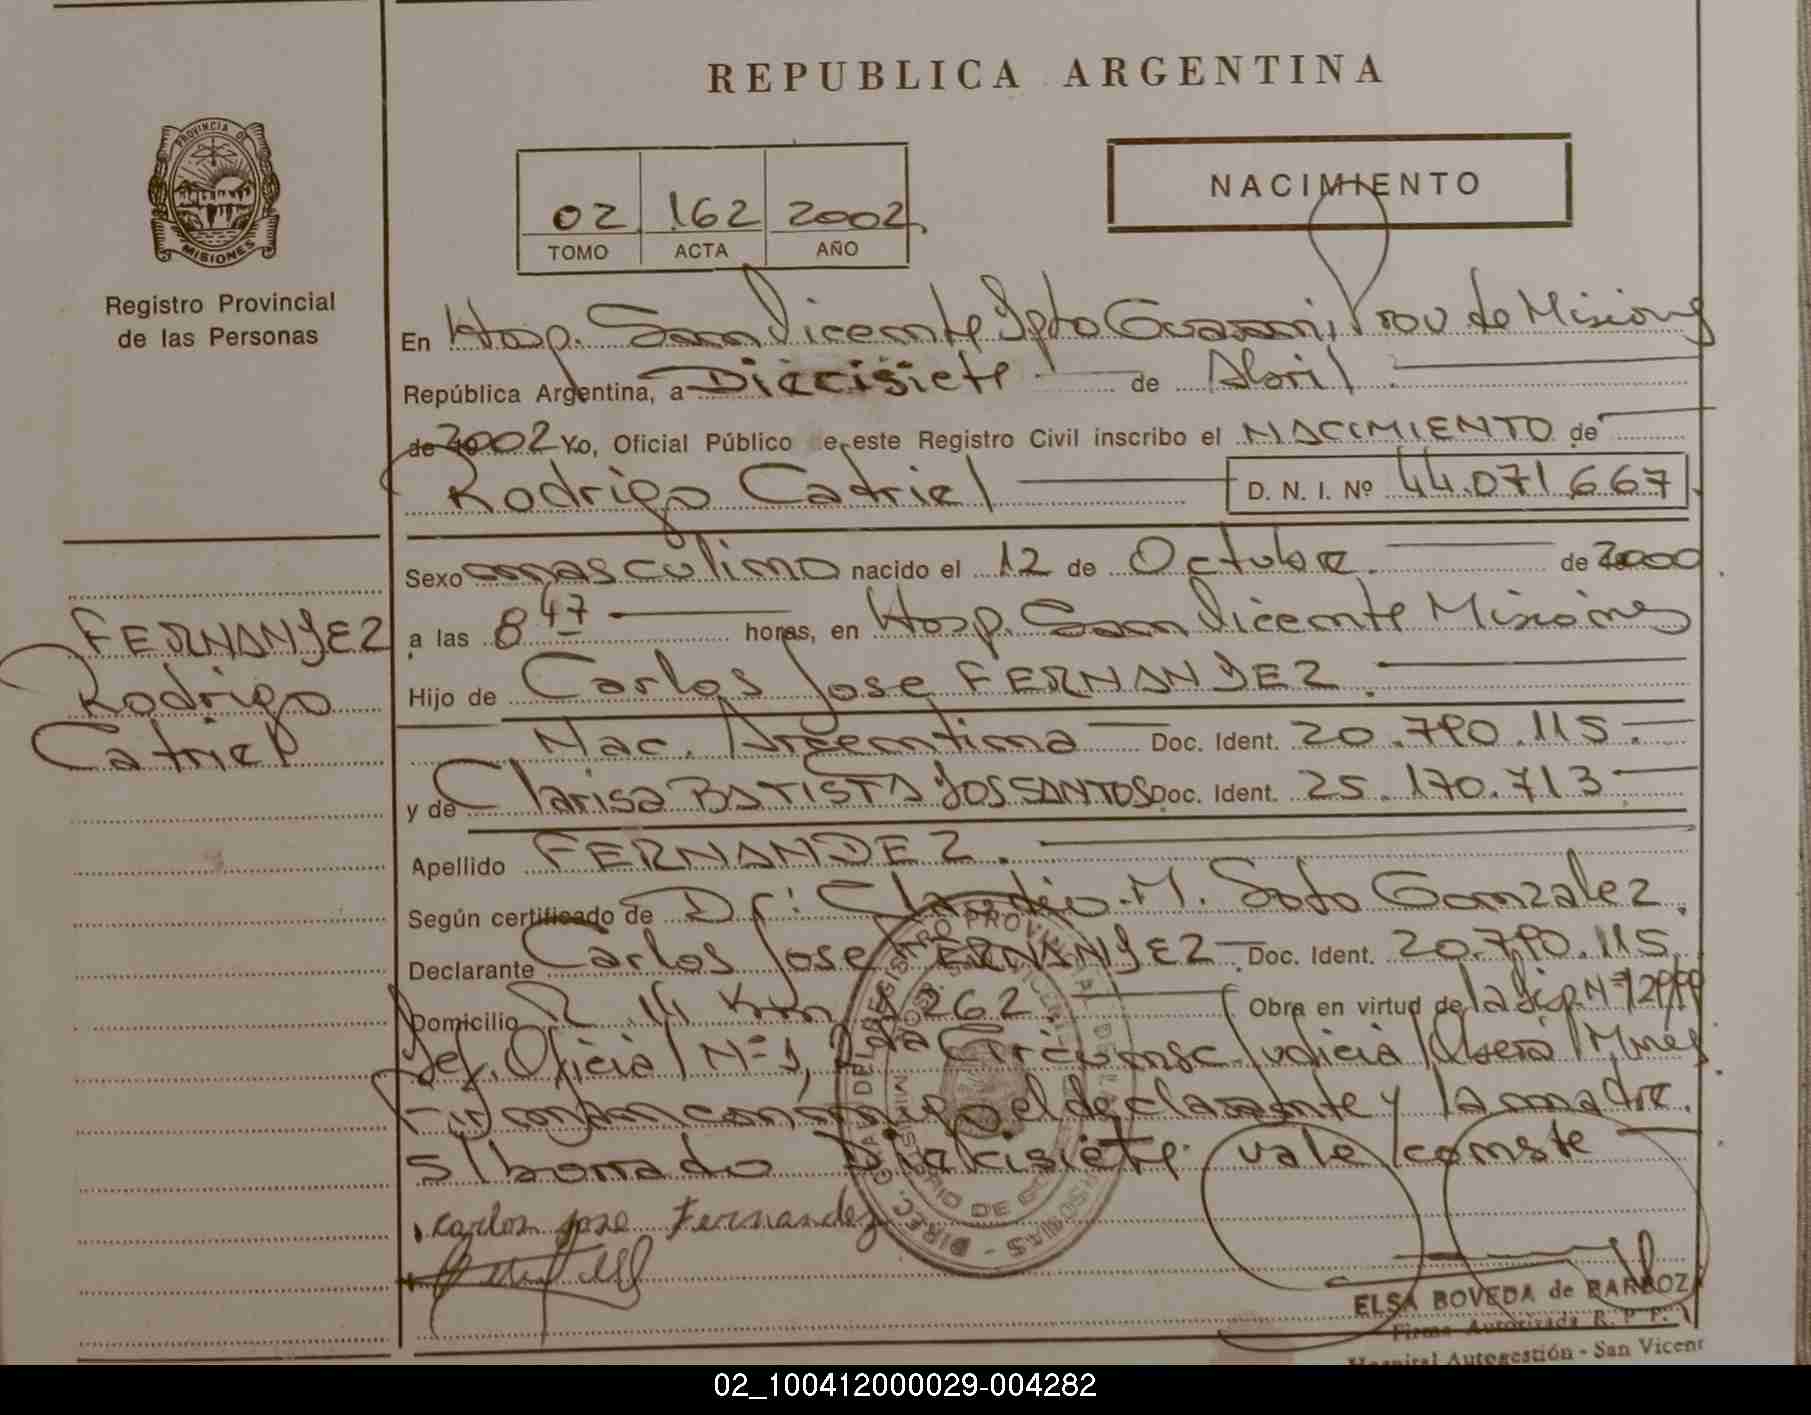 REPUBLICA ARGENTINA
PROVINCIA DE
MISIONES
Registro Provincial
de las Personas
02 162 2002
TOMO ACTA AÑO
NACIMIENTO
En Hosp. San Vicente Dpto Guarani, Prov de Misiones
República Argentina, a Diecisiete de Abril
de 2002 Yo, Oficial Público de este Registro Civil inscribo el NACIMIENTO de
Rodrigo Catriel D. N. I. Nº 44.071.667
Sexo masculino nacido el 12 de Octubre de 2000
a las 8 47 horas, en Hosp. San Vicente Misiones
Hijo de Carlos Jose FERNANDEZ
Nac. Argentina Doc. Ident. 20.790.115
y de Clarisa BATISTA DOS SANTOS Doc. Ident. 25.170.713
Apellido FERNANDEZ.
Según certificado de Dr: Claudio M. Soto Gonzalez.
Declarante Carlos Jose FERNANDEZ Doc. Ident. 20.790.115
Domicilio R. 14 Km 1262 Obra en virtud de la Disp. Nº
Def. Oficial Nº 1, 2da Circunsc Judicial Obera Mnes
Firman conmigo el declarante y la madre.
s/borrado Diecisiete vale conste
Carlos jose Fernandez
FERNANDEZ
Rodrigo
Catriel
ELSA BOVEDA de BARBOZ
Firma Autorizada R. P. P.
Hospital Autogestión - San Vicent
02_100412000029-004282